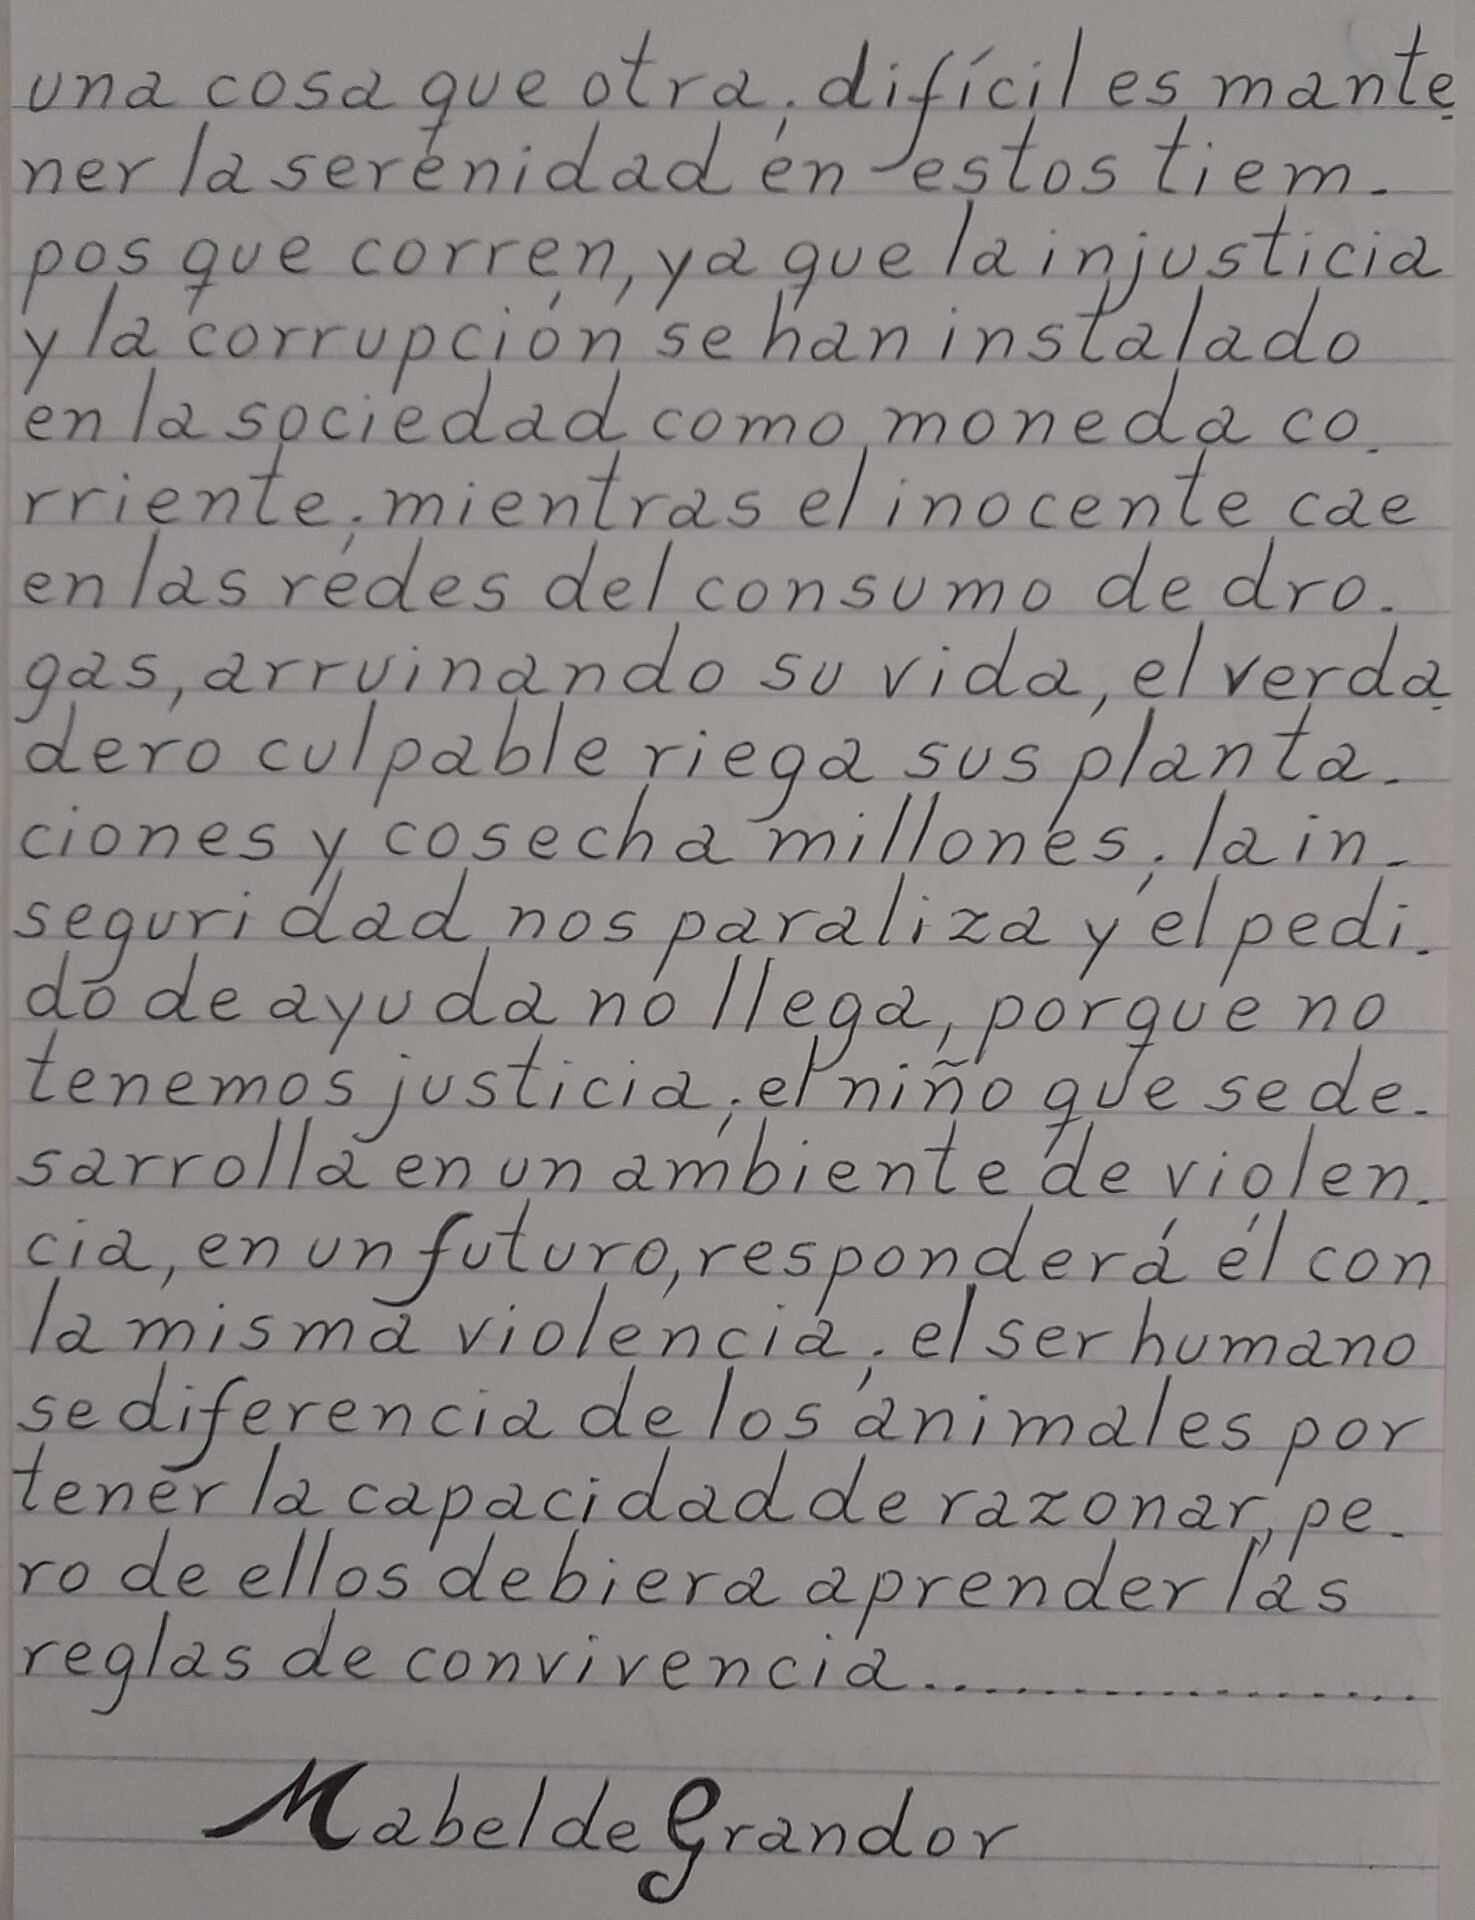 una cosa que otra; difícil es mante-
ner la serenidad en estos tiem-
pos que corren, ya que la injusticia
y la corrupción se han instalado
en la sociedad como moneda co-
rriente; mientras el inocente cae
en las redes del consumo de dro-
gas, arruinando su vida, el verda-
dero culpable riega sus planta-
ciones y cosecha millones; la in-
seguridad nos paraliza y el pedi-
do de ayuda no llega, porque no
tenemos justicia; el niño que se de-
sarrolla en un ambiente de violen-
cia, en un futuro, responderá él con
la misma violencia; el ser humano
se diferencia de los animales por
tener la capacidad de razonar, pe-
ro de ellos debiera aprender las
reglas de convivencia..................
Mabel de Grandor